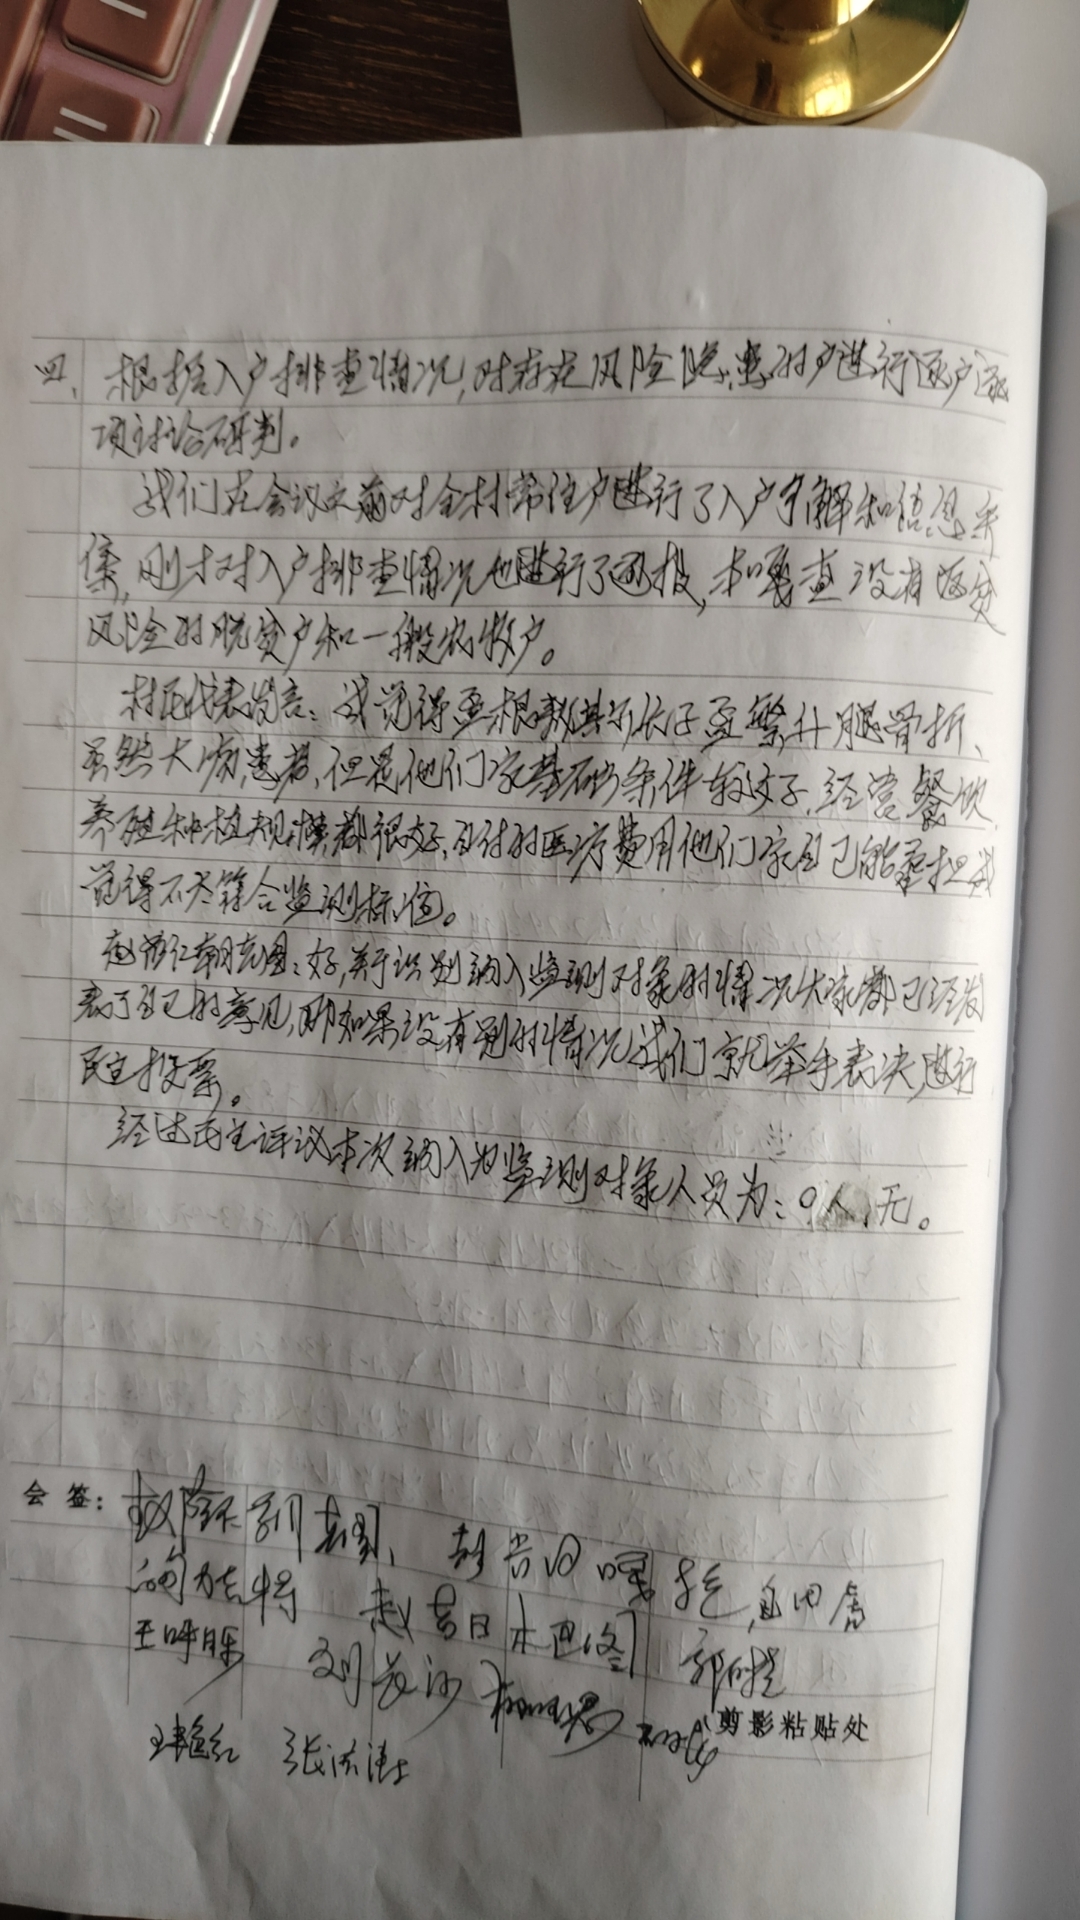 四、根据入户排查情况,对存在风险隐患的户进行逐户逐
项讨论研判。
我们在会议之前对全村常住户进行了入户了解和信息采
集,刚才对入户排查情况也进行了通报,本嘎查没有返贫
风险的脱贫户和一般农牧户。
村民代表发言:我觉得孟根敖其尔长子孟繁什腿骨折、
虽然大病患者,但是他们家基础条件较好,经营餐饮,
养殖种植规模都很好,自付的医疗费用他们家自己能承担我
觉得不太符合监测标准。
朝克图:好,关于识别纳入监测对象的情况大家都已经发
表了自己的意见,那如果没有别的情况我们就举手表决,进行
民主投票。
经过民主评议本次纳入为监测对象人员为:0人,无。
会签:
赵 图
特 赵 日 木 巴图 郭
王 刘
王 红 张
剪影粘贴处